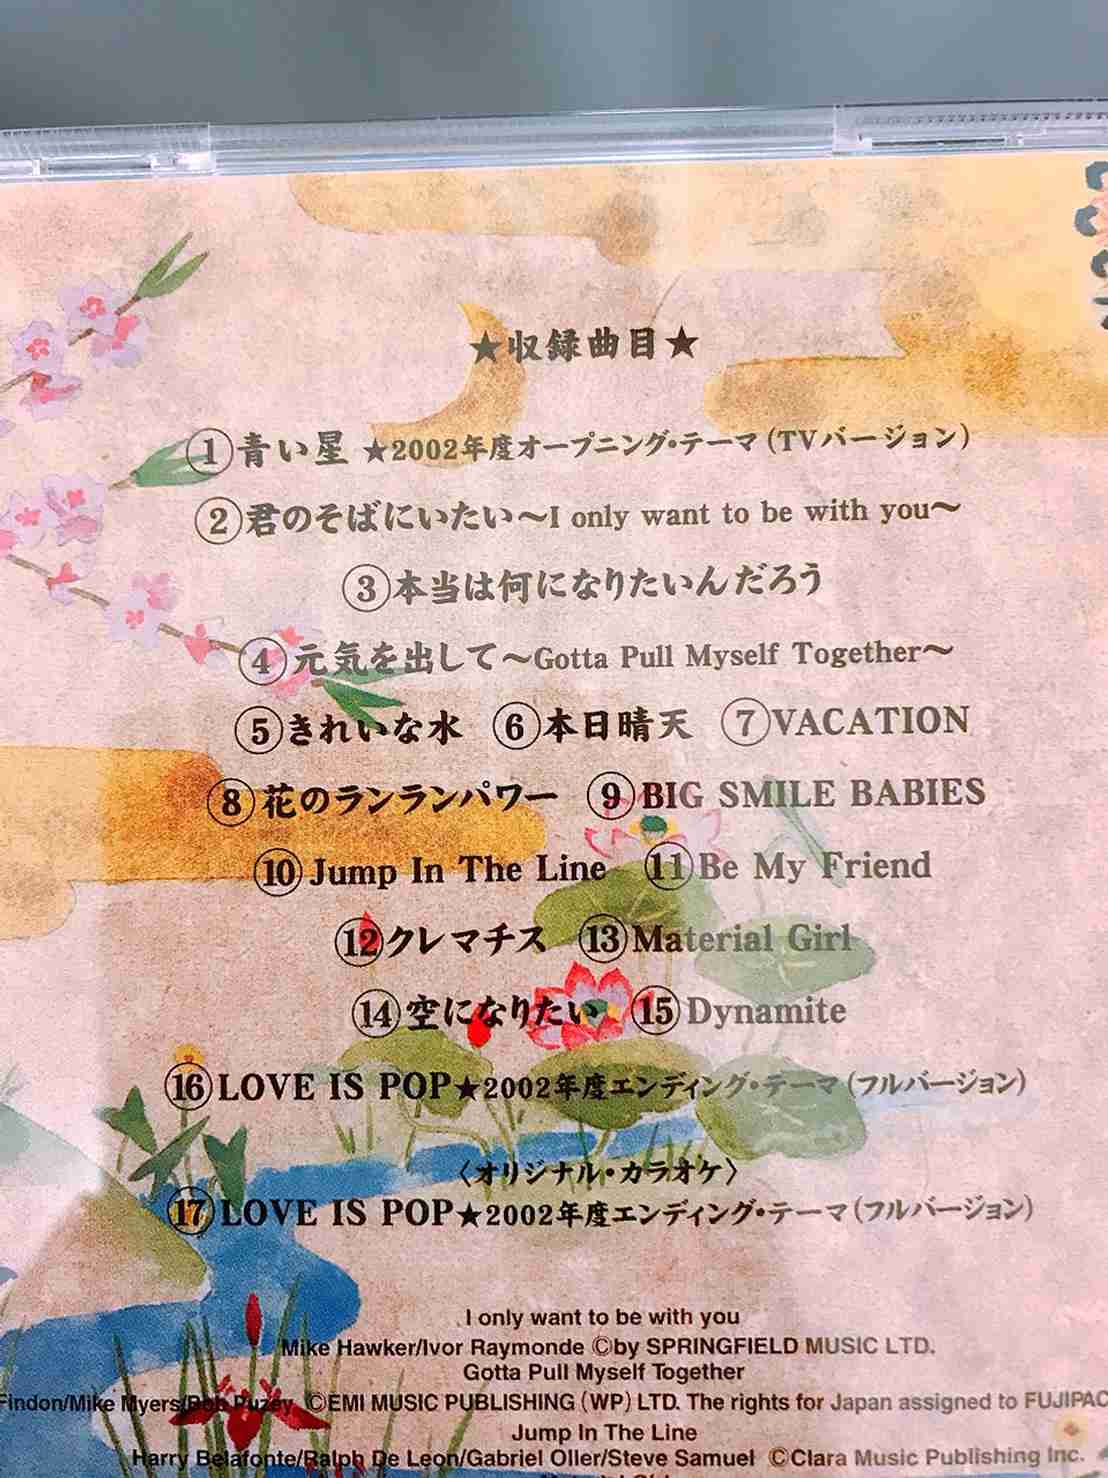 ★収録曲目★
①青い星 ★2002年度オープニング・テーマ(TVバージョン)
②君のそばにいたい〜I only want to be with you〜
③本当は何になりたいんだろう
④元気を出して〜Gotta Pull Myself Together〜
⑤きれいな水 ⑥本日晴天 ⑦VACATION
⑧花のランランパワー ⑨BIG SMILE BABIES
⑩Jump In The Line ⑪Be My Friend
⑫クレマチス ⑬Material Girl
⑭空になりたい ⑮Dynamite
⑯LOVE IS POP★2002年度エンディング・テーマ(フルバージョン)
〈オリジナル・カラオケ〉
⑰LOVE IS POP★2002年度エンディング・テーマ(フルバージョン)
I only want to be with you
Mike Hawker/Ivor Raymonde ©by SPRINGFIELD MUSIC LTD.
Gotta Pull Myself Together
Findon/Mike Myers/Bob Puzey ©EMI MUSIC PUBLISHING (WP) LTD. The rights for Japan assigned to FUJIPAC
Jump In The Line
Harry Belafonte/Ralph De Leon/Gabriel Oller/Steve Samuel ©Clara Music Publishing Inc.